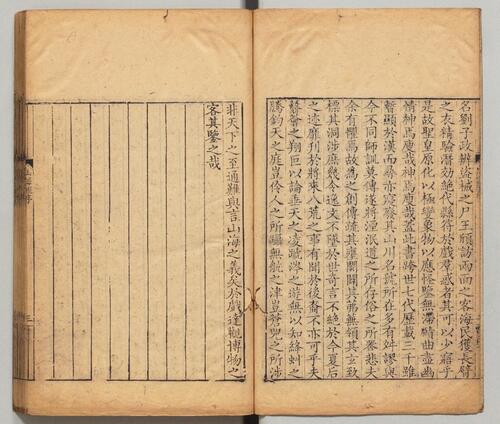 名劉子政辨盜械之尸王頎訪兩面之客海民獲長臂
之衣精驗潛效絕代縣符於戲羣惑者其可以少寤乎
是故聖皇原化以極變象物以應怪鑒無滯賾曲盡幽
情神焉廋哉神焉廋哉蓋此書跨世七代歷載三千雖
暫顯於漢而尋亦寢廢其山川名號所在多有舛謬與
今不同師訓莫傳遂將湮泯道之所存俗之所喪悲夫
余有懼焉故為之創傳疏其壅閡闢其茀蕪領其玄致
標其洞涉庶幾令逸文不墜於世奇言不絕於今夏后
之迹靡刊於將來八荒之事有聞於後裔不亦可乎夫
蘙薈之翔叵以論垂天之凌蹏涔之遊無以知絳虯之
騰鈞天之庭豈伶人之所躡無航之津豈蒼兕之所涉
非天下之至通難與言山海之義矣於戲達觀博物之
客其鑒之哉